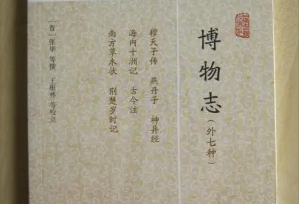 博物志
（外七种）
穆天子传 燕丹子 神异经
海内十洲记 古今注
南方草木状 荆楚岁时记
［晋］张华 等撰 王根林 等校点